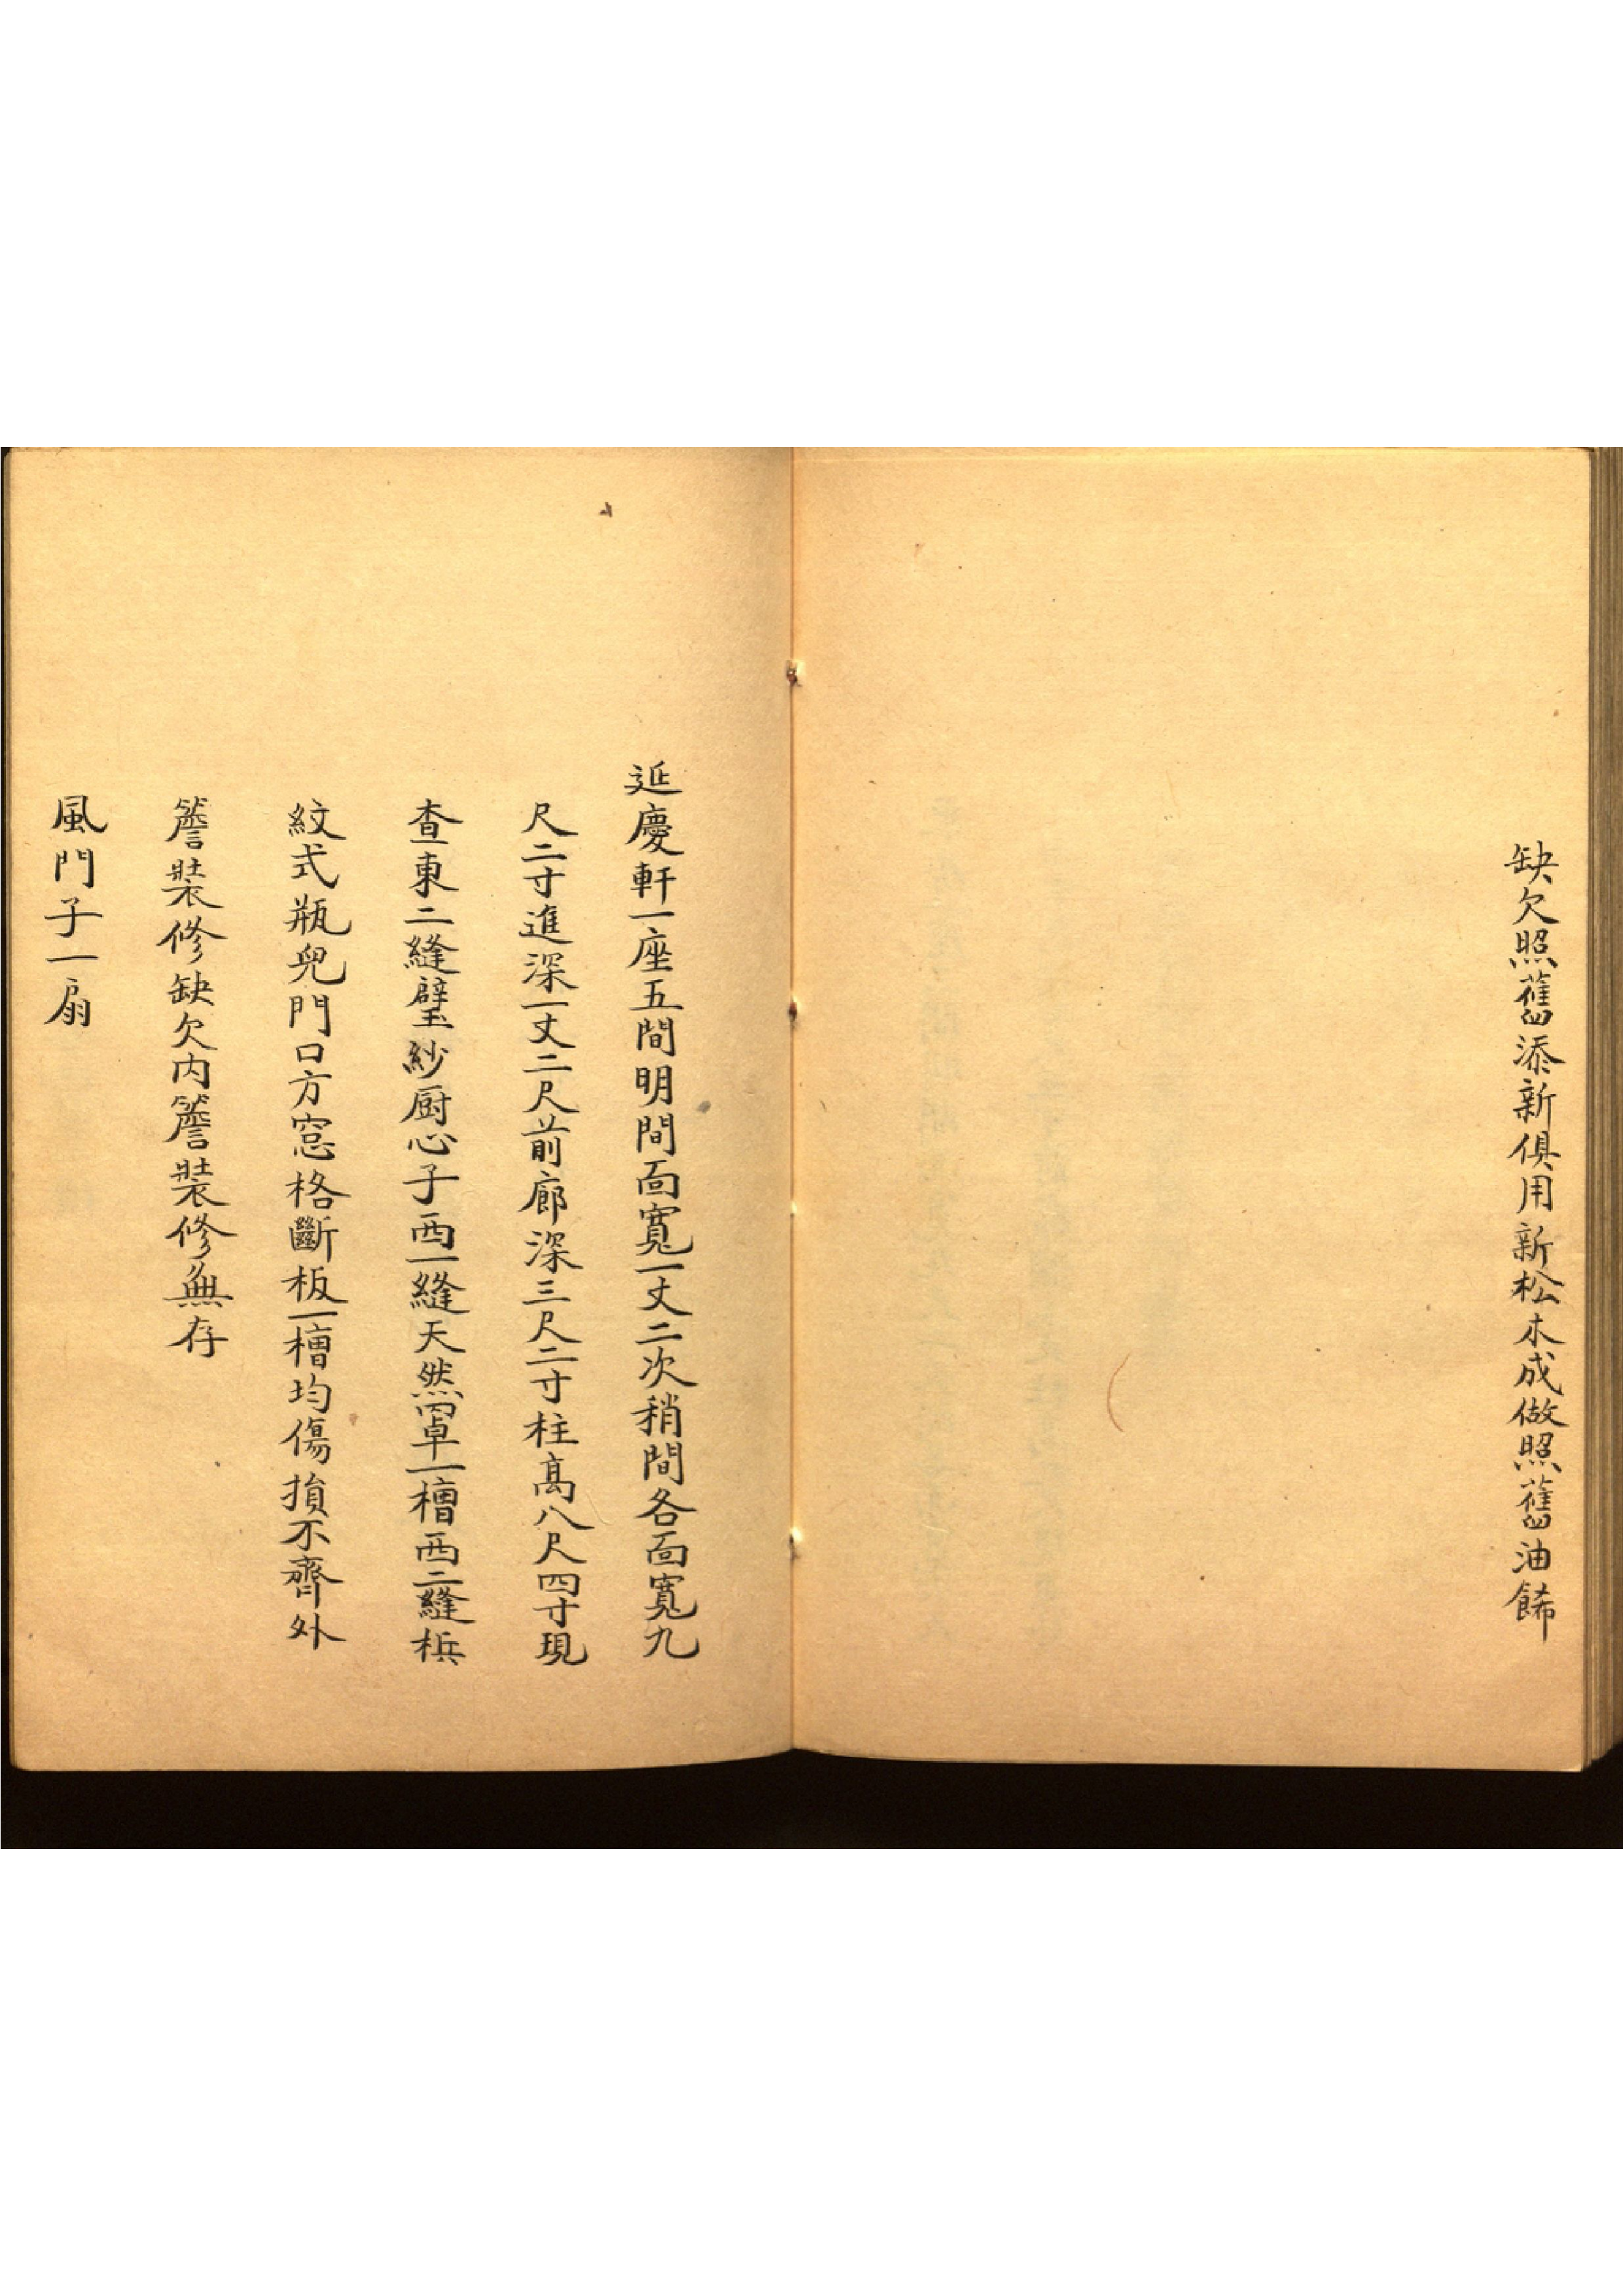 缺欠照舊添新俱用新松木成做照舊油餙
延慶軒一座五間明間面寬一丈二次稍間各面寬九
尺二寸進深一丈二尺前廊深三尺二寸柱高八尺四寸現
查東二縫壁紗厨心子西一縫天然罩一槽西二縫梹
紋式瓶兒門口方窓格斷板一槽均傷損不齊外
簷裝修缺欠內簷裝修無存
風門子一扇